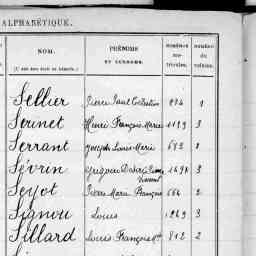 ALPHABÉTIQUE.
NOM. PRÉNOMS ET SURNOMS. NUMÉROS MATRICULES. NUMÉRO DU VOLUME.
Sellier Pierre Paul Célestin 2
Serinet Henri François Marie 1129 3
Serrant Joseph Louis Marie 2
Sévrin Grégoire Désiré Vincent 3
Seyot Pierre Marie François 2
Signou Louis 1269 3
Sillard Louis François 812 2